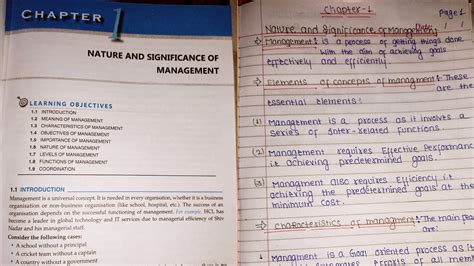 CHAPTER 1
NATURE AND SIGNIFICANCE OF
MANAGEMENT
LEARNING OBJECTIVES
1.1 INTRODUCTION
1.2 MEANING OF MANAGEMENT
1.3 CHARACTERISTICS OF MANAGEMENT
1.4 OBJECTIVES OF MANAGEMENT
1.5 IMPORTANCE OF MANAGEMENT
1.6 NATURE OF MANAGEMENT
1.7 LEVELS OF MANAGEMENT
1.8 FUNCTIONS OF MANAGEMENT
1.9 COORDINATION
1.1 INTRODUCTION
Management is a universal concept. It is needed in every organisation, whether it is a business
organisation or non-business organisation (like school, hospital, etc.). The success of an
organisation depends on the successful functioning of management. For example, HCL has
become a leader in global technology and IT services due to managerial efficiency of Shiv
Nadar and his managerial staff.
Consider the following cases:
• A school without a principal
• A cricket team without a captain
• A country without a government
Chapter-1
Page 1
Nature and Significance of Management
Management: is a process of getting things done
with the aim of achieving goals
effectively and efficiently.
Elements of concepts of managment: These
are the
essential elements:
(1) Management is a process as it involves a
series of Inter-related functions.
(2) Management requires Effective Performance
i.e achieving predetermined goals.
(3) Managment also requires Efficiency i.e
achieving the predetermined goals at the
minimum cost.
Characteristics of managment: The main
are
Managment is a Goal oriented process as it